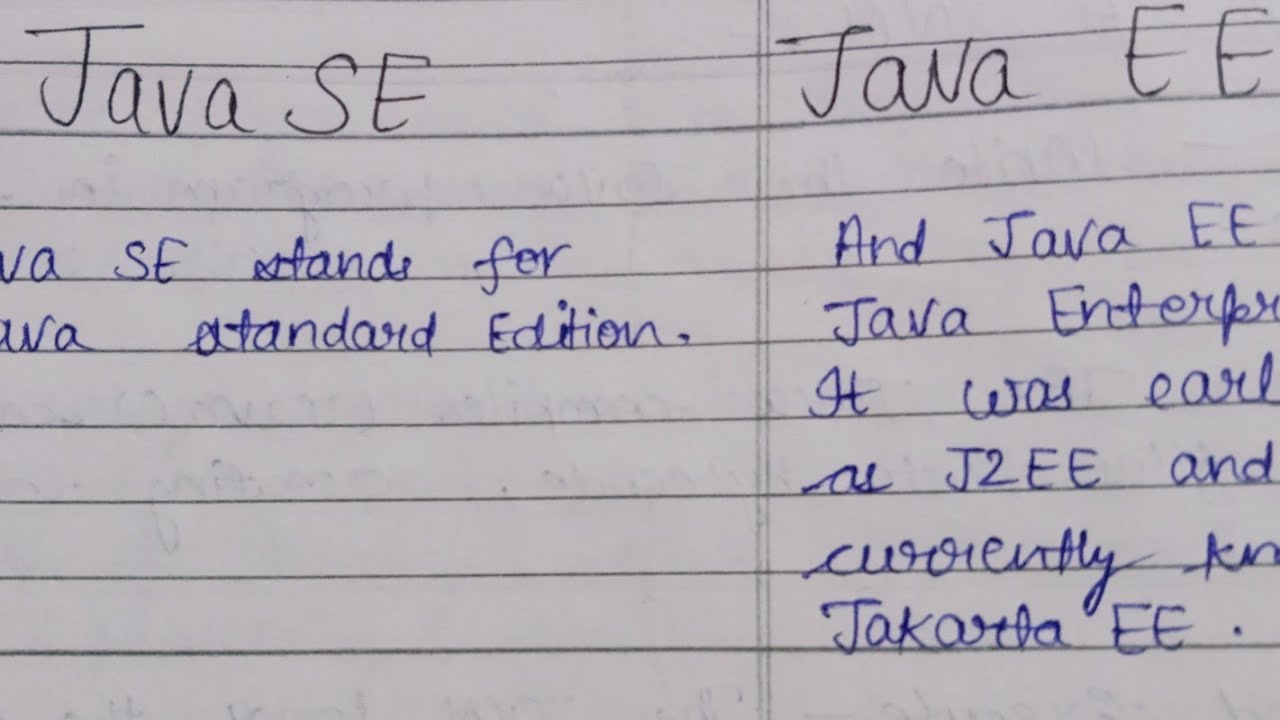 Java SE
Java EE
va SE stands for
ava standard Edition.
And Java EE
Java Enterpr
It was earl
as J2EE and
currently kn
Jakarta EE.